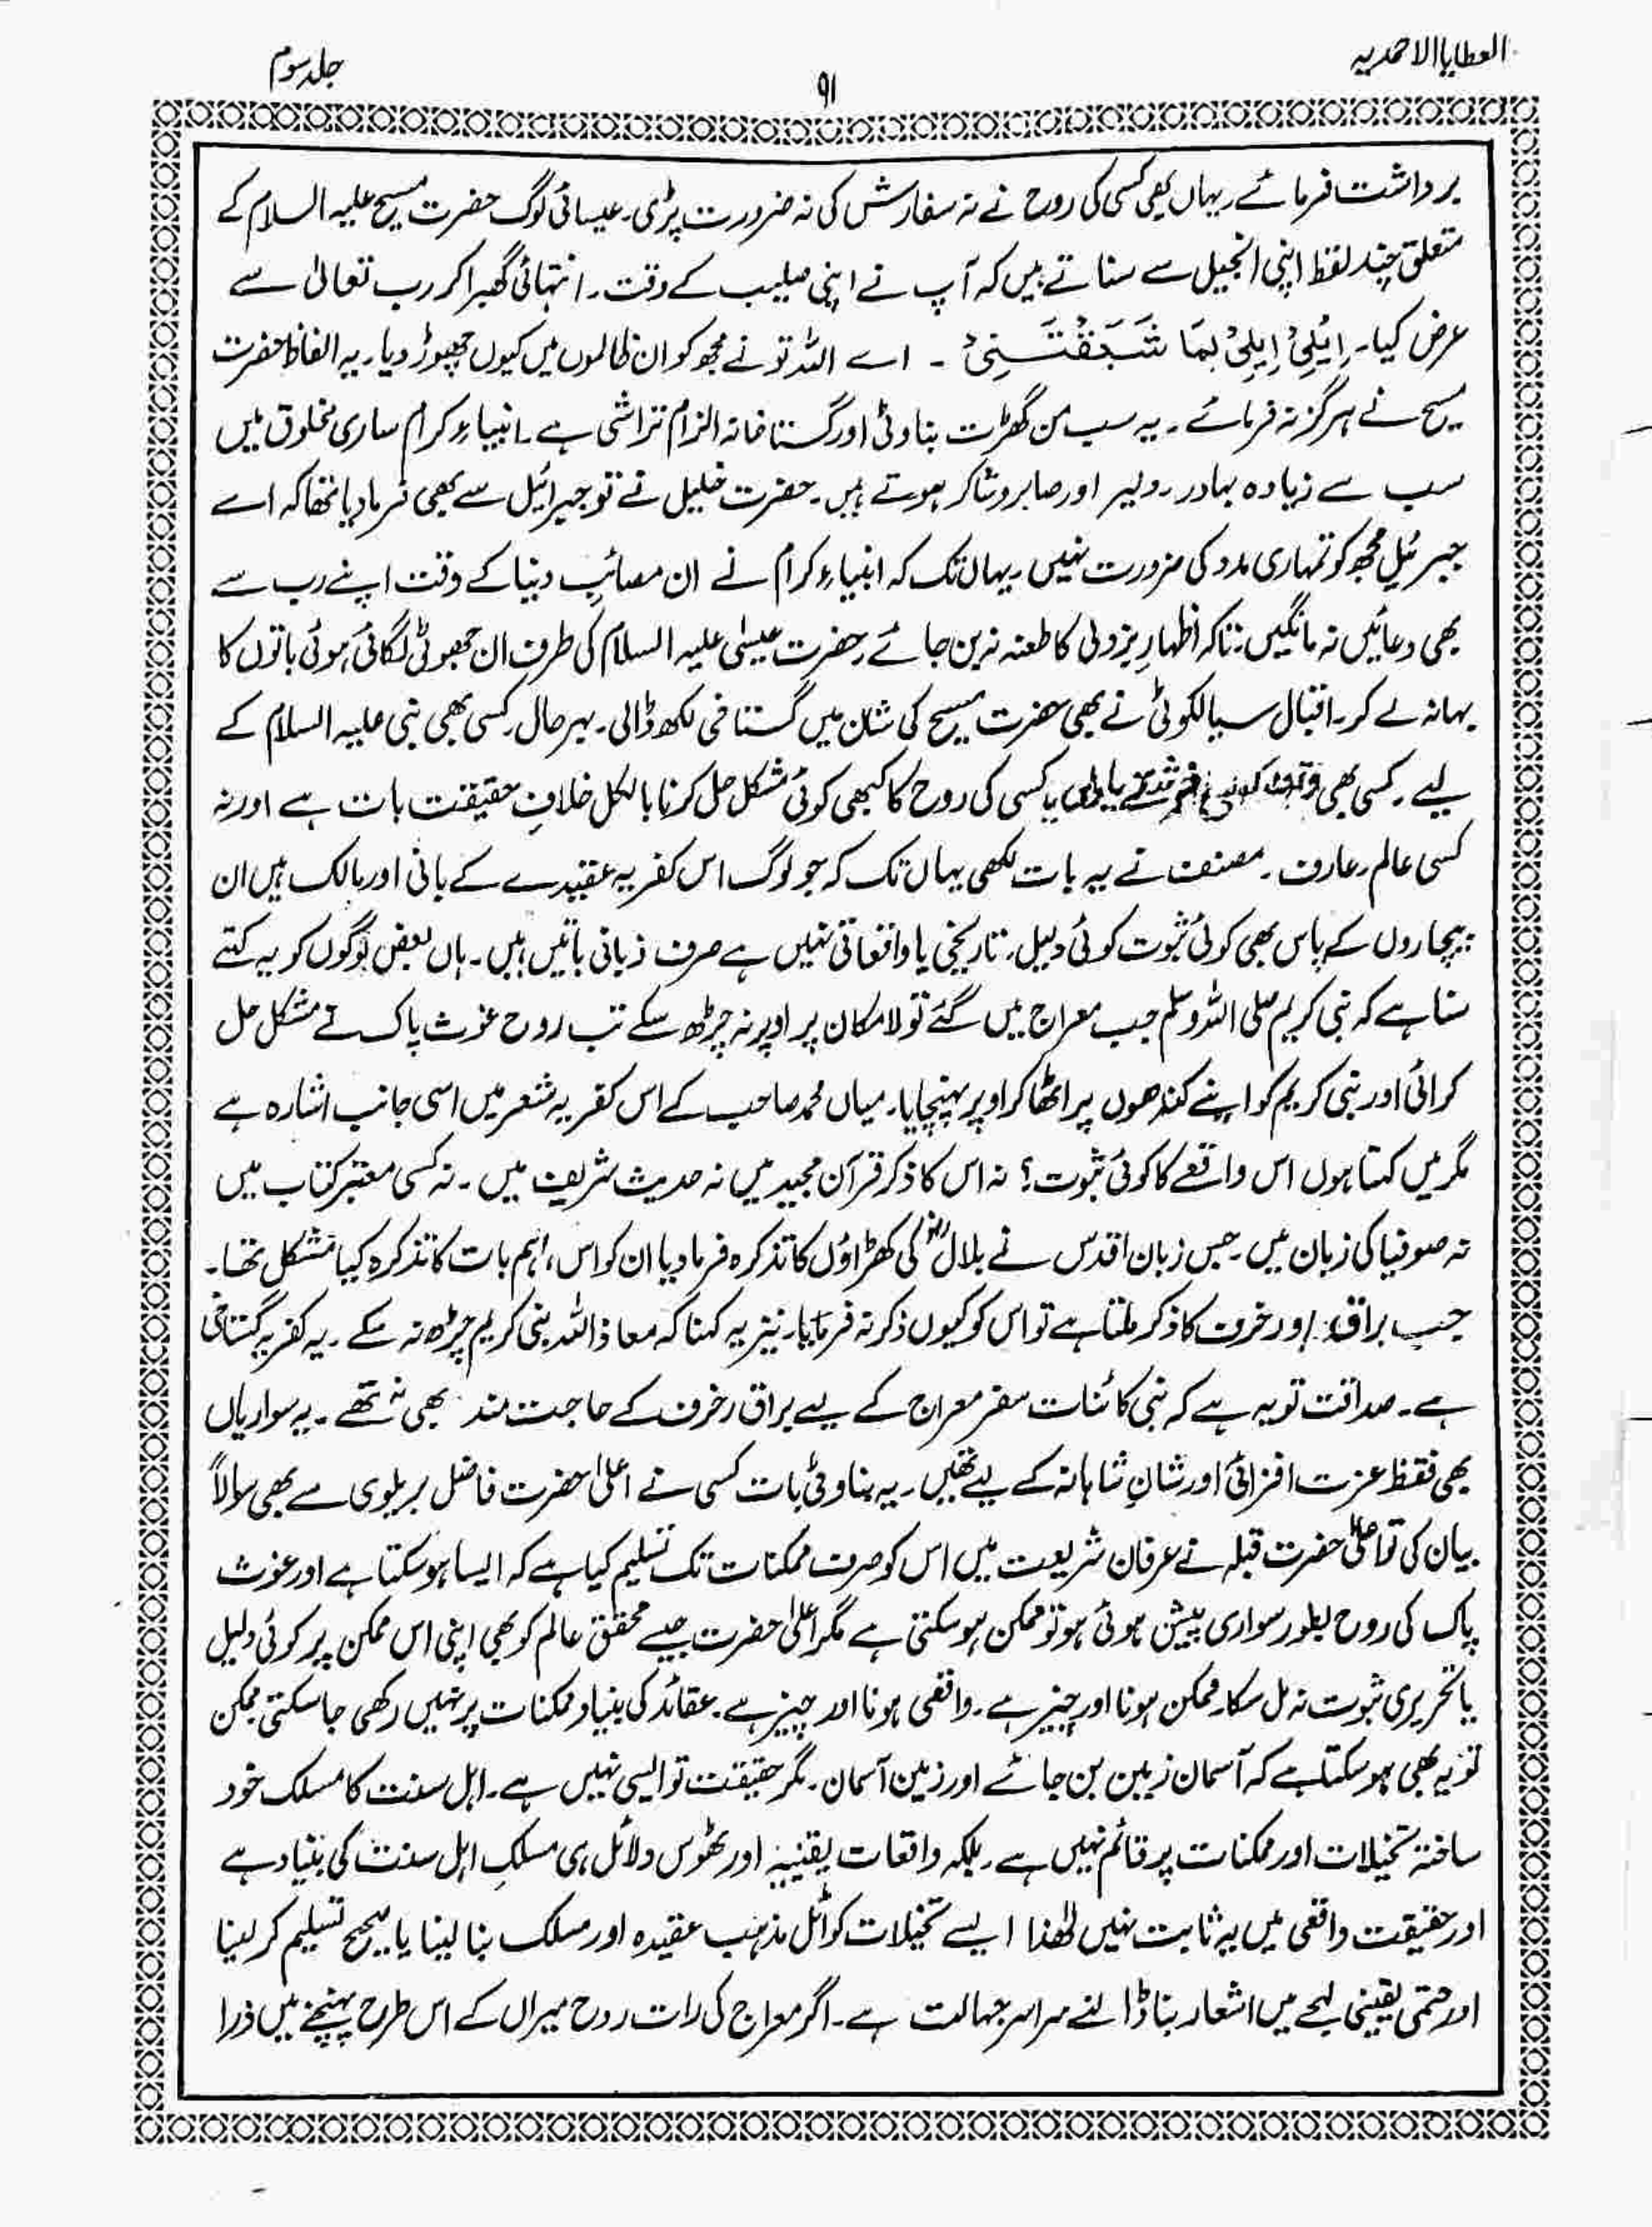 العطایا الاحمدیہ
۹۱
جلد سوم
برداشت فرمائے۔ یہاں بھی کسی کی روح نے نہ سفارش کی نہ ضرورت پڑی۔ عیسائی لوگ حضرت مسیح علیہ السلام کے
متعلق چند لفظ اپنی انجیل سے سناتے ہیں کہ آپ نے اپنی صلیب کے وقت۔ انتہائی گھبرا کر رب تعالیٰ سے
عرض کیا۔ اِیْلِیْ اِیلِیْ لِمَا شَبَقْتَنِیْ ۔ اے اللہ تو نے مجھ کو ان ظالموں میں کیوں چھوڑ دیا۔ یہ الفاظ حضرت
مسیح نے ہرگز نہ فرمائے۔ یہ سب من گھڑت بناوٹی اور گستاخانہ الزام تراشی ہے۔ انبیاءِ کرام ساری مخلوق میں
سب سے زیادہ بہادر۔ دلیر اور صابر و شاکر ہوتے ہیں۔ حضرت خلیل نے تو جبرائیل سے بھی فرما دیا تھا کہ اے
جبرئیل مجھ کو تمہاری مدد کی ضرورت نہیں۔ یہاں تک کہ انبیاءِ کرام نے ان مصائبِ دنیا کے وقت اپنے رب سے
بھی دعائیں نہ مانگیں۔ تاکہ اظہارِ بزدلی کا طعنہ نہ بن جائے۔ حضرت عیسیٰ علیہ السلام کی طرف ان جھوٹی لگائی ہوئی باتوں کا
بہانہ لے کر۔ اقبال سیالکوٹی نے بھی حضرت مسیح کی شان میں گستاخی لکھ ڈالی۔ بہرحال۔ کسی بھی نبی علیہ السلام کے
لیے۔ کسی بھی یا کسی کی روح کا کبھی کوئی مشکل حل کرنا بالکل خلافِ حقیقت بات ہے اور نہ
کسی عالم، عارف۔ مصنف نے یہ بات لکھی یہاں تک کہ جو لوگ اس کفریہ عقیدے کے بانی اور مالک ہیں ان
بیچاروں کے پاس بھی کوئی ثبوت کوئی دلیل، تاریخی یا واقعاتی نہیں ہے صرف زبانی باتیں ہیں۔ ہاں بعض لوگوں کو یہ کہتے
سنا ہے کہ نبی کریم صلی اللہ وسلم جب معراج میں گئے تو لامکان پر اوپر نہ چڑھ سکے تب روح غوث پاک نے مشکل حل
کرائی اور نبی کریم کو اپنے کندھوں پر اٹھا کر اوپر پہنچایا۔ میاں محمد صاحب کے اس کفریہ شعر میں اسی جانب اشارہ ہے
مگر میں کہتا ہوں اس واقعے کا کوئی ثبوت؟ نہ اس کا ذکر قرآن مجید میں نہ حدیث شریف میں۔ نہ کسی معتبر کتاب میں
نہ صوفیا کی زبان میں۔ جس زبانِ اقدس نے بلالؓ کی کھڑاؤں کا تذکرہ فرما دیا ان کو اس، اہم بات کا تذکرہ کیا مشکل تھا۔
جب براق، اور خرف کا ذکر ملتا ہے تو اس کو کیوں ذکر نہ فرمایا۔ نیز یہ کہنا کہ معاذ اللہ نبی کریم چڑھ نہ سکے۔ یہ کفریہ گستاخی
ہے۔ صداقت تو یہ ہے کہ نبی کائنات سفر معراج کے لیے براق، زخرف کے حاجت مند بھی نہ تھے۔ یہ سواریاں
بھی فقط عزت افزائی اور شانِ شاہانہ کے لیے تھیں۔ یہ بناوٹی بات کسی نے اعلیٰ حضرت فاضل بریلوی سے بھی سوالاً
بیان کی تو اعلیٰ حضرت قبلہ نے عرفان شریعت میں اس کو صرف ممکنات تک تسلیم کیا ہے کہ ایسا ہو سکتا ہے اور غوث
پاک کی روح بطور سواری پیش ہوئی ہو تو ممکن ہو سکتی ہے مگر اعلیٰ حضرت جیسے محقق عالم کو بھی اپنی اس ممکن پر کوئی دلیل
یا تحریری ثبوت نہ مل سکا۔ ممکن ہونا اور چیز ہے۔ واقعی ہونا اور چیز ہے۔ عقائد کی بنیاد ممکنات پر نہیں رکھی جا سکتی ممکن
تو یہ بھی ہو سکتا ہے کہ آسمان زمین بن جائے اور زمین آسمان۔ مگر حقیقت تو ایسی نہیں ہے۔ اہل سنت کا مسلک خود
ساختہ تخیلات اور ممکنات پر قائم نہیں ہے۔ بلکہ واقعات یقینیہ اور ٹھوس دلائل ہی مسلکِ اہل سنت کی بنیاد ہے
اور حقیقت واقعی میں یہ ثابت نہیں لٰھذا ایسے تخیلات کو اٹل مذہب عقیدہ اور مسلک بنا لینا یا صحیح تسلیم کر لینا
اور حتمی یقینی لہجے میں اشعار بنا ڈالنے سراسر جہالت ہے۔ اگر معراج کی رات روح میراں کے اس طرح پہنچنے میں ذرا